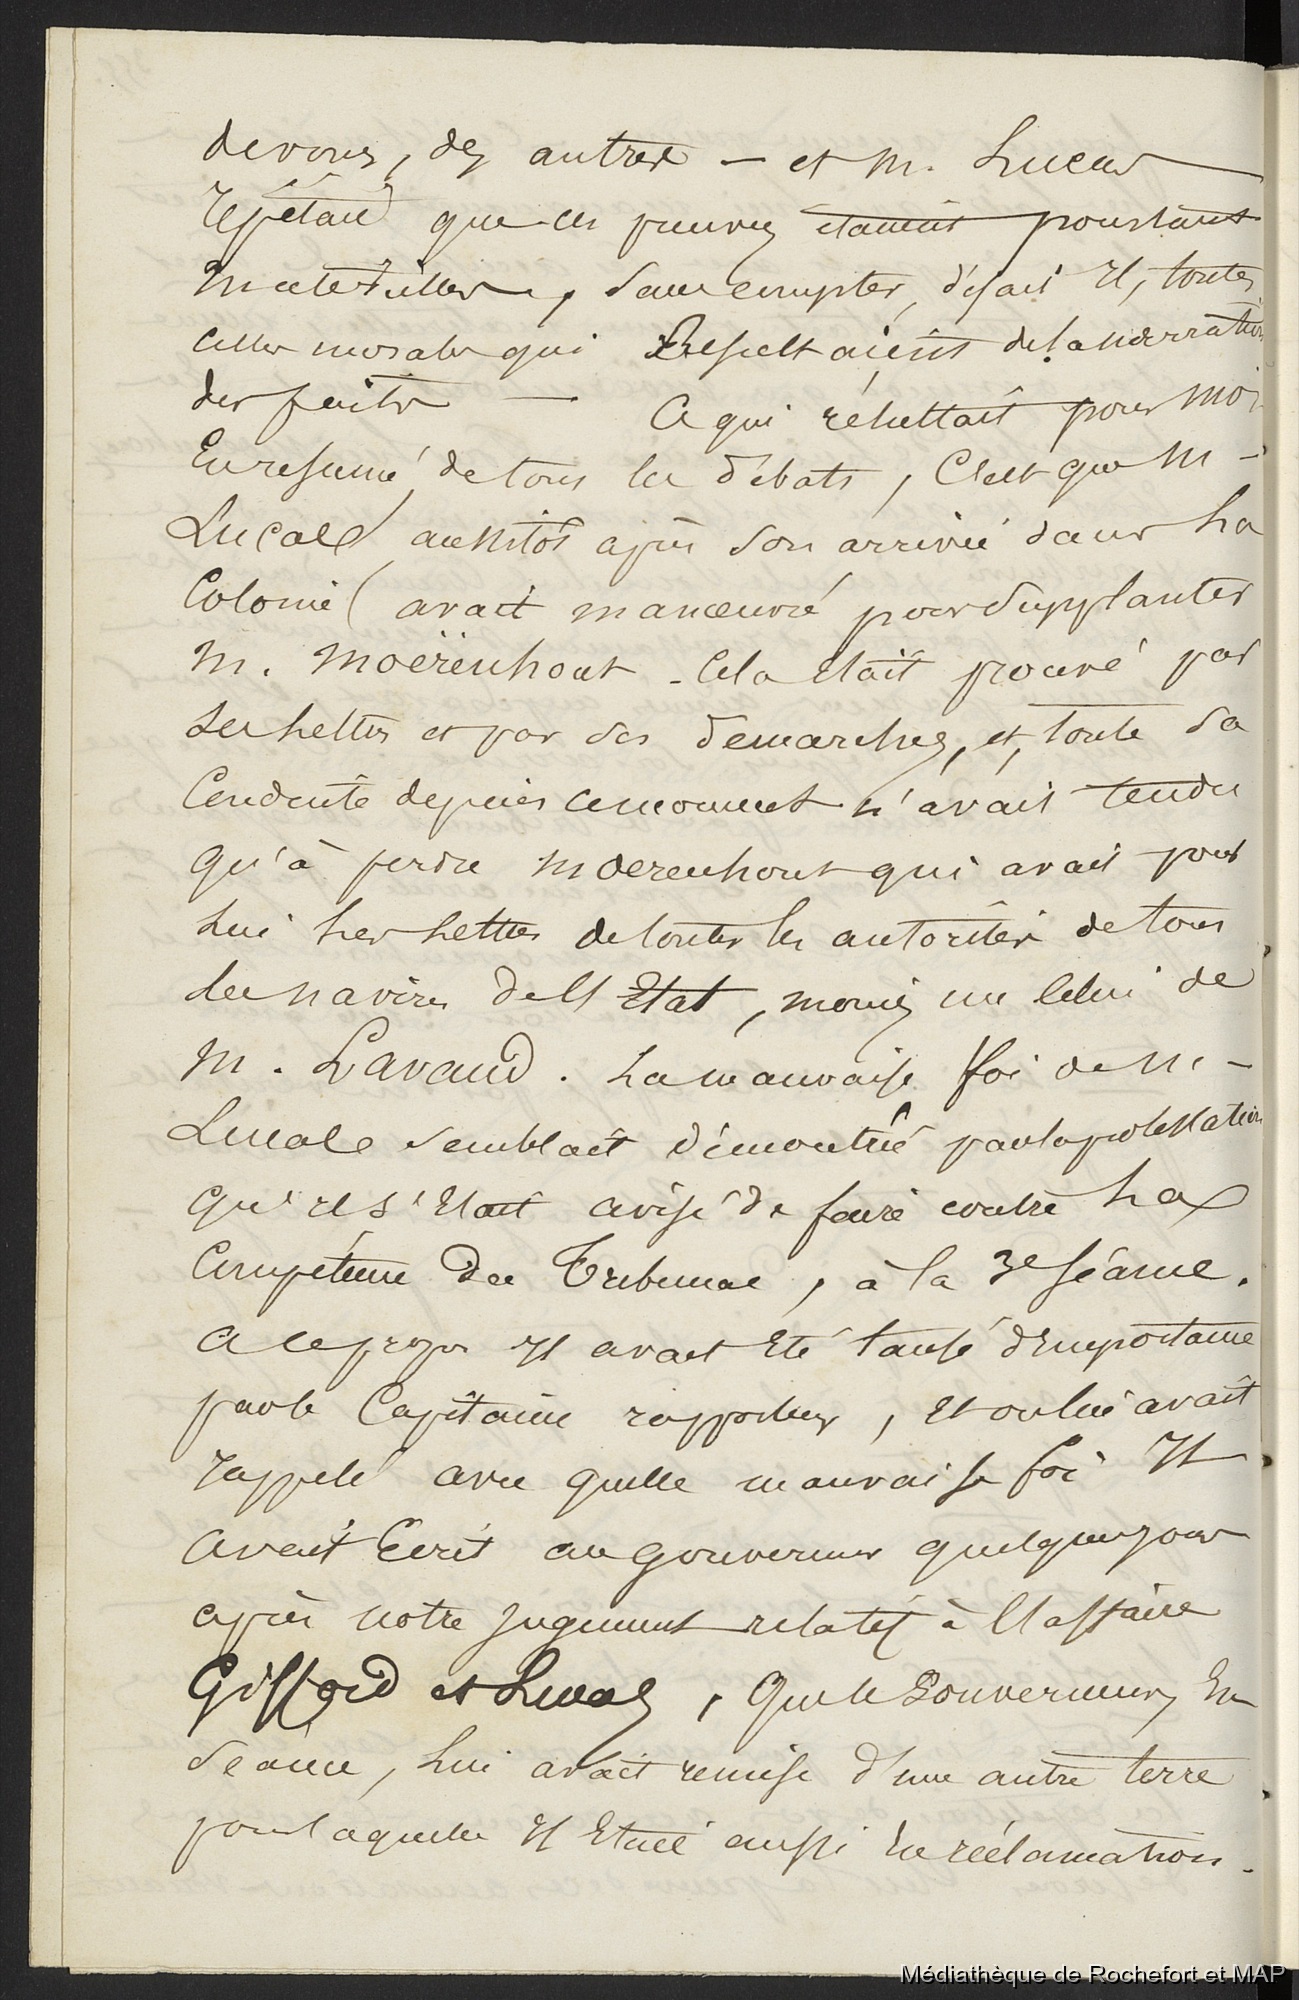 devoirs, des autres — et M. Lucas
répétait que ces preuves étaient pourtant
materielles, sans compter, disait Il, toutes
celles morales qui Résultaient de la narration
des faits — Ce qui résultait pour moi
En resumé de tous les débats, C'est que M -
Lucas aussitôt après son arrivée dans La
Colonie avait manœuvré pour Supplanter
M. Moërenhout - Cela était prouvé par
Ses Lettres et par ses demarches, et, toute sa
Conduite depuis ce moment n'avait tendu
qu'à perdre Moerenhout qui avait pour
Lui Les Lettres de toutes les autorités de tous
Les navires de l'Etat, moins une Celui de
M. Lavaud. La mauvaise foi de M -
Lucas semblait démontrée par la protestation
qu'il s'Etait avisé de faire contre La
Compétence du Tribunal, à la 3e séance.
A ce propos Il avait Eté tansé d'importance
par le Capitaine rapporteur, Et on lui avait
rappelé avec quelle mauvaise foi Il
avait Ecrit au gouverneur quelques jours
après notre jugement relatif à l'affaire
Gifford et Lucas, que le Gouverneur, En
Séance, Lui avait remise d'une autre terre
pour laquelle Il Etait aussi En réclamation -
Médiathèque de Rochefort et MAP